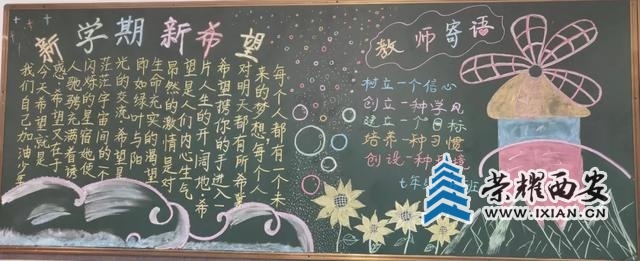 新学期新希望
每个人都有一个未
来的梦想,每个人
对明天都有所希冀
希望携你的手进入一
片人生的开阔地,希
望是人们内心生气
昂然的激情是对
生命充实的渴望
即如绿叶与阳
光的交流,希望是
茫茫宇宙间的一个
闪烁的星宿,她使
人驰骋充满着诱
惑,希望又在于
今天希望就是
我们自己加油少年
教师寄语
树立一个信心
创立一种学风
建立一个目标
培养一种习惯
创设一种环境
七年
班
荣耀西安
WWW.IXIAN.CN